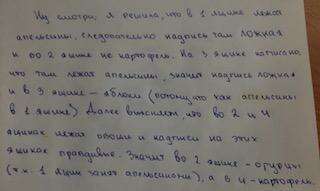 Ну смотри, я решила, что в 1 ящике лежат
апельсины, следовательно надпись там ложная
и во 2 ящике не картофель. На 3 ящике написано,
что там лежат апельсины, значит надпись ложная
и в 3 ящике – яблоки (потому что как апельсины
в 1 ящике) Далее выясняем, что во 2 и 4
ящиках лежат овощи и надписи на этих
ящиках правдивые. Значит во 2 ящике – огурцы
(т.к. 1 ящик занят апельсинами), а в 4 – картофель.